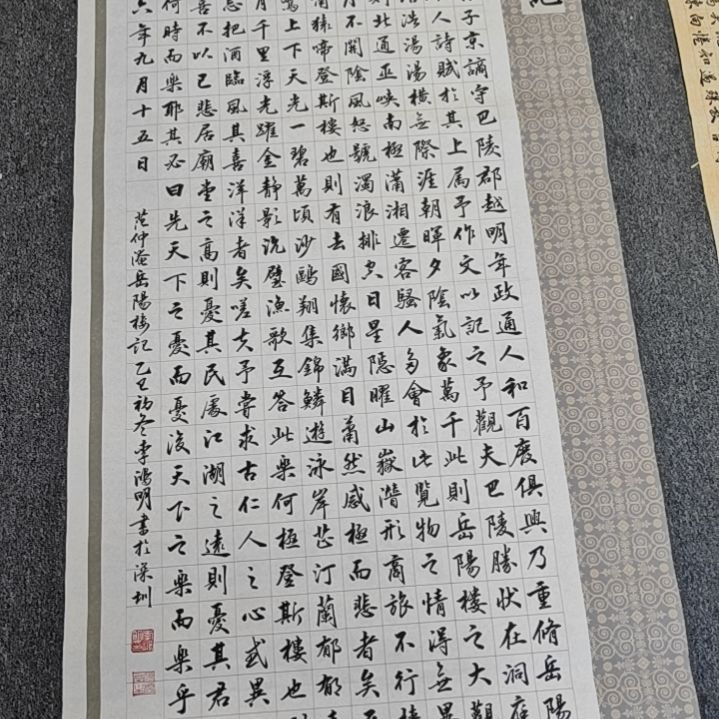 記
子京謫守巴陵郡越明年政通人和百廢俱興乃重脩岳陽
人詩賦於其上属予作文以記之予觀夫巴陵勝状在洞庭
浩湯湯橫無際涯朝暉夕陰氣象萬千此則岳陽樓之大觀
則北通巫峽南極瀟湘遷客騷人多會於此覽物之情得無異
月不開陰風怒號濁浪排空日星隱曜山嶽潛形商旅不行檣
猿啼登斯樓也則有去國懷鄉滿目蕭然感極而悲者矣至
焉上下天光一碧萬頃沙鷗翔集錦鱗遊泳岸芷汀蘭郁郁青
月千里浮光躍金靜影沉璧漁歌互答此樂何極登斯樓也則
忘把酒臨風其喜洋洋者矣嗟夫予嘗求古仁人之心或異
喜不以己悲居廟堂之高則憂其民處江湖之遠則憂其君
何時而樂耶其必曰先天下之憂而憂後天下之樂而樂乎
六年九月十五日 范仲淹岳陽樓記乙巳初冬李鴻明書於深圳